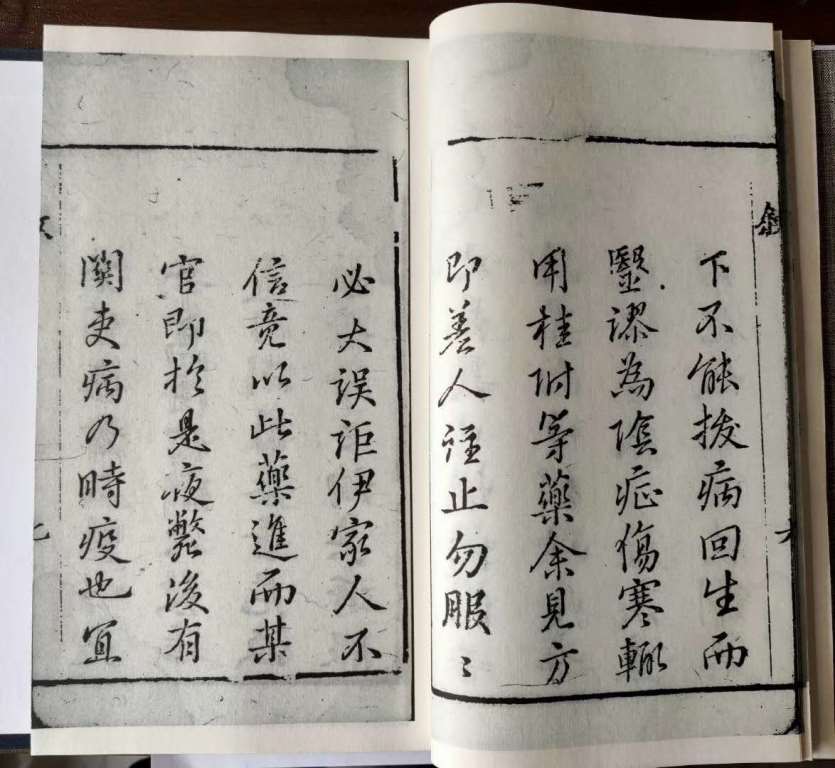 叙
下不能拔病回生而
醫謬為陰症傷寒輙
用桂附等藥余見方
即差人诖止勿服〻
六
必大誤詎伊家人不
信竟以此藥進而某
官即於是夜斃後有
関吏病乃時疫也宜
七